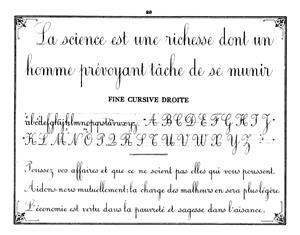 28
La science est une richesse dont un
homme prévoyant tâche de se munir
FINE CURSIVE DROITE
abcdefghijklmnopqrstuvwxyz A B C D E F G H I J
K L M N O P Q R S T U V W X Y Z
Poussez vos affaires et que ce ne soient pas elles qui vous poussent.
Aidons-nous mutuellement: la charge des malheurs en sera plus légère.
L'économie est vertu dans la pauvreté et sagesse dans l'aisance.